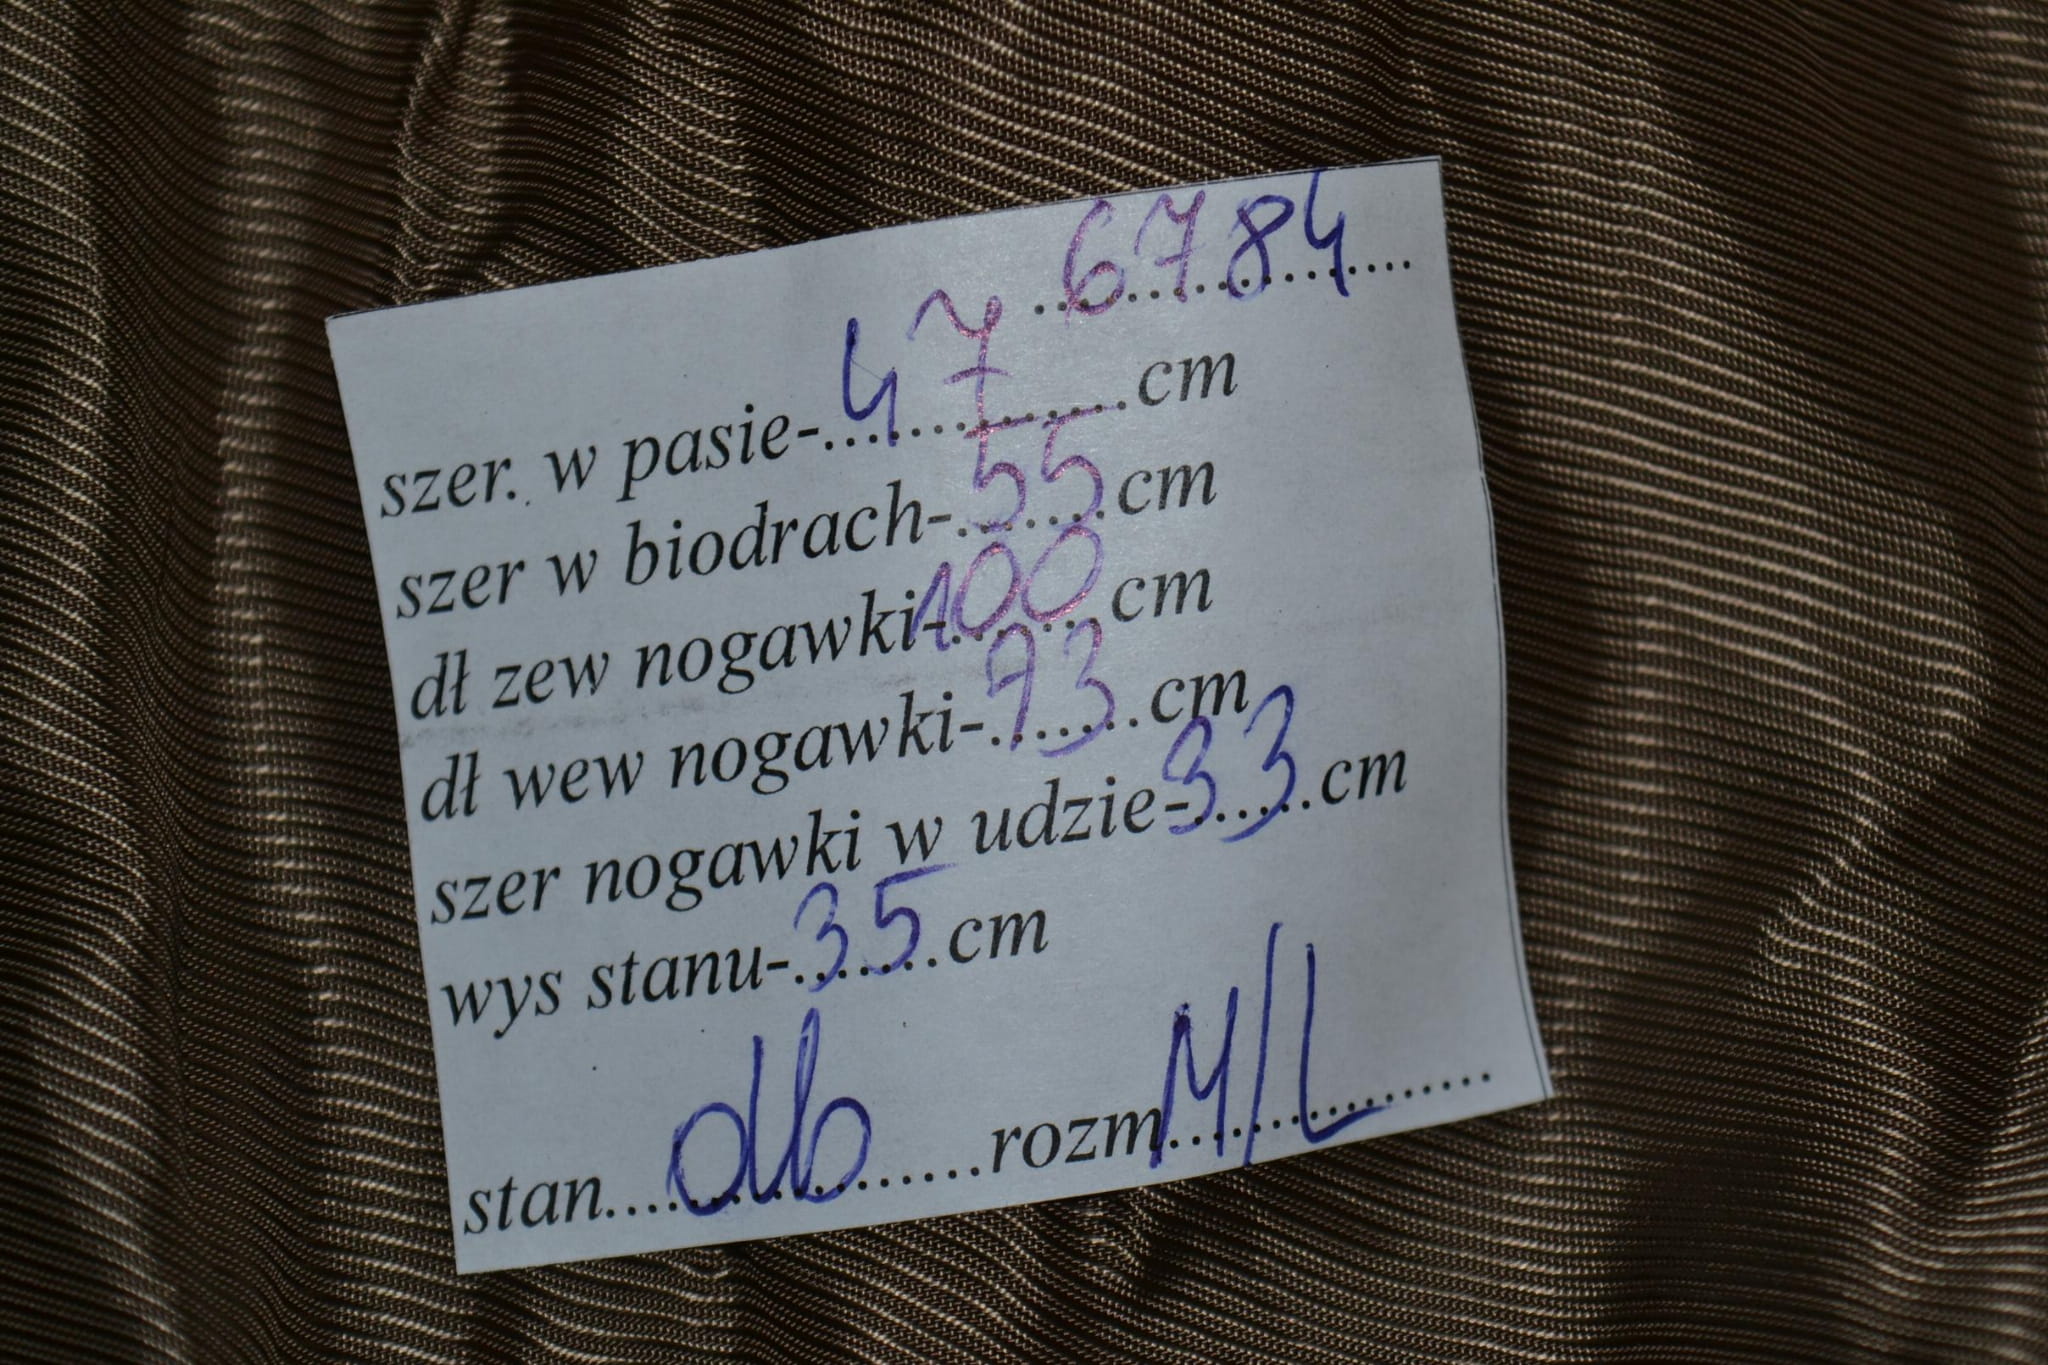 6784
szer. w pasie-.47.......cm
szer w biodrach-.55.....cm
dł zew nogawki-100.....cm
dł wew nogawki-.73.....cm
szer nogawki w udzie-33.....cm
wys stanu-.35.....cm
stan....db........rozm M/L........